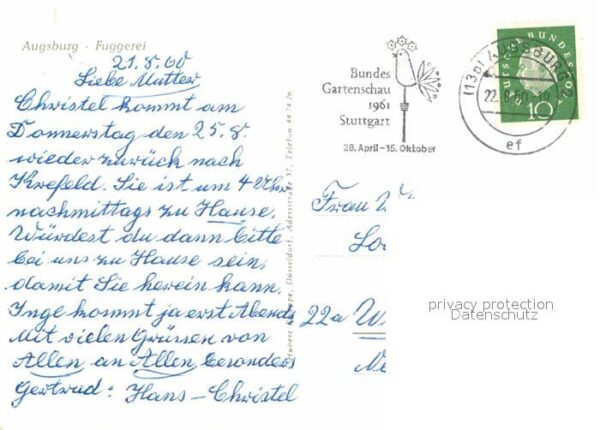 Augsburg - Fuggerei
21.8.60
Liebe Mutter
Christel kommt am
Donnerstag den 25.8.
wieder zurück nach
Krefeld. Sie ist um 4 Uhr
nachmittags zu Hause.
Würdest du dann bitte
bei uns zu Hause sein,
damit Sie herein kann.
Inge kommt ja erst Abends
Mit vielen Grüssen von
Allen an Allen, besonders
Gertrud: Hans-Christel
Düsseldorf, Adersstraße 37, Telefon
Bundes
Gartenschau
1961
Stuttgart
28. April-15. Oktober
(13b) AUGSBURG
22.8.60
ef
DEUTSCHE BUNDESPOST
10
Frau W
22a W
privacy protection
Datenschutz